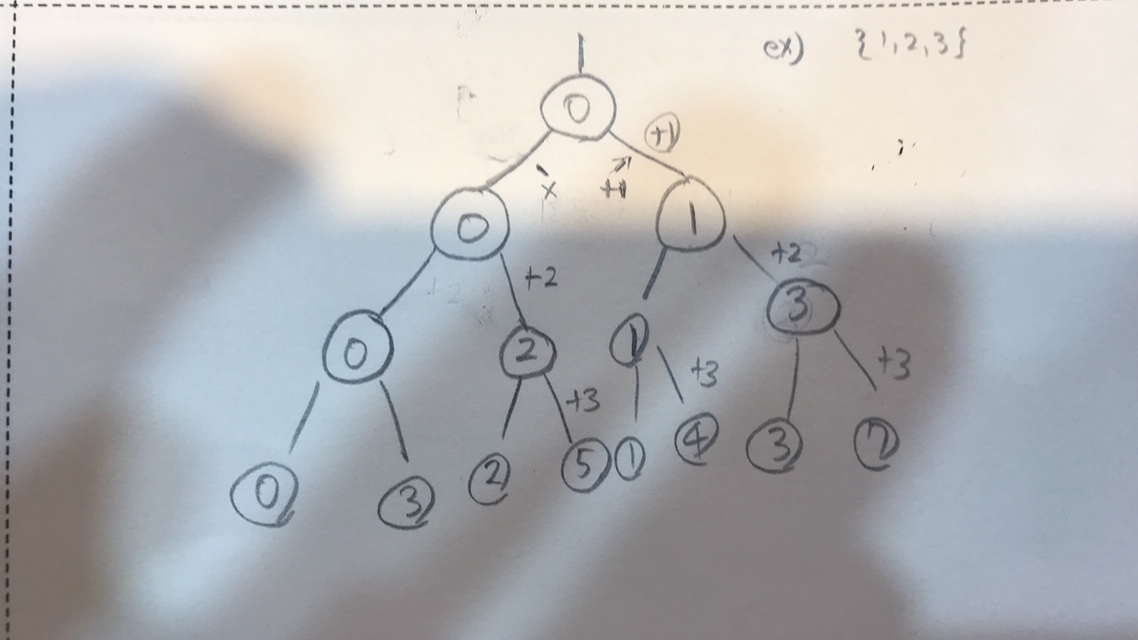 ex) {1,2,3}
0
+1
x
+1
0
1
+2
+2
0
2
1
3
+3
+3
+3
0
3
2
5
1
4
3
7